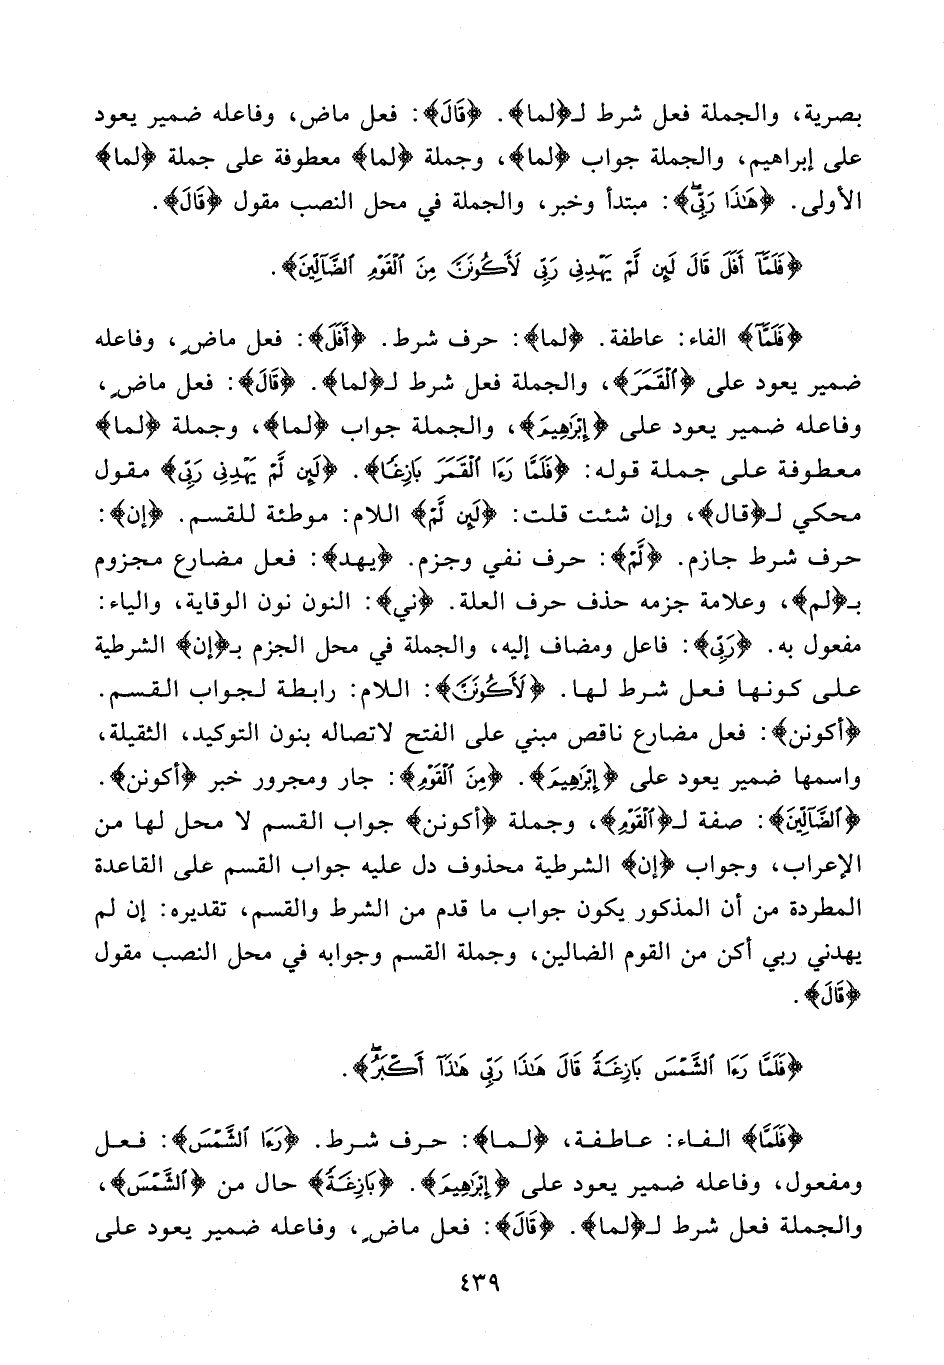 بصرية، والجملة فعل شرط لـ﴿لما﴾. ﴿قَالَ﴾: فعل ماض، وفاعله ضمير يعود
على إبراهيم، والجملة جواب ﴿لما﴾، وجملة ﴿لما﴾ معطوفة على جملة ﴿لما﴾
الأولى. ﴿هَٰذَا رَبِّيۖ﴾: مبتدأ وخبر، والجملة في محل النصب مقول ﴿قَالَ﴾.
﴿فَلَمَّآ أَفَلَ قَالَ لَئِن لَّمْ يَهْدِنِي رَبِّي لَأَكُونَنَّ مِنَ ٱلْقَوْمِ ٱلضَّآلِّينَ﴾.
﴿فَلَمَّآ﴾ الفاء: عاطفة. ﴿لما﴾: حرف شرط. ﴿أَفَلَ﴾: فعل ماضٍ، وفاعله
ضمير يعود على ﴿ٱلْقَمَرَ﴾، والجملة فعل شرط لـ﴿لما﴾. ﴿قَالَ﴾: فعل ماضٍ،
وفاعله ضمير يعود على ﴿إِبْرَٰهِيمَ﴾، والجملة جواب ﴿لما﴾، وجملة ﴿لما﴾
معطوفة على جملة قوله: ﴿فَلَمَّا رَءَا ٱلْقَمَرَ بَازِغًا﴾. ﴿لَئِن لَّمْ يَهْدِنِي رَبِّي﴾ مقول
محكي لـ﴿قال﴾، وإن شئت قلت: ﴿لَئِن لَّمْ﴾ اللام: موطئة للقسم. ﴿إن﴾:
حرف شرط جازم. ﴿لَّمْ﴾: حرف نفي وجزم. ﴿يهد﴾: فعل مضارع مجزوم
بـ﴿لم﴾، وعلامة جزمه حذف حرف العلة. ﴿ني﴾: النون نون الوقاية، والياء:
مفعول به. ﴿رَبِّي﴾: فاعل ومضاف إليه، والجملة في محل الجزم بـ﴿إن﴾ الشرطية
على كونها فعل شرط لها. ﴿لَأَكُونَنَّ﴾: اللام: رابطة لجواب القسم.
﴿أكونن﴾: فعل مضارع ناقص مبني على الفتح لاتصاله بنون التوكيد، الثقيلة،
واسمها ضمير يعود على ﴿إِبْرَٰهِيمَ﴾. ﴿مِنَ ٱلْقَوْمِ﴾: جار ومجرور خبر ﴿أكونن﴾.
﴿ٱلضَّآلِّينَ﴾: صفة لـ﴿ٱلْقَوْمِ﴾، وجملة ﴿أكونن﴾ جواب القسم لا محل لها من
الإعراب، وجواب ﴿إن﴾ الشرطية محذوف دل عليه جواب القسم على القاعدة
المطردة من أن المذكور يكون جواب ما قدم من الشرط والقسم، تقديره: إن لم
يهدني ربي أكن من القوم الضالين، وجملة القسم وجوابه في محل النصب مقول
﴿قَالَ﴾.
﴿فَلَمَّا رَءَا ٱلشَّمْسَ بَازِغَةً قَالَ هَٰذَا رَبِّي هَٰذَآ أَكْبَرُۖ﴾.
﴿فَلَمَّا﴾ الفاء: عاطفة، ﴿لما﴾: حرف شرط. ﴿رَءَا ٱلشَّمْسَ﴾: فعل
ومفعول، وفاعله ضمير يعود على ﴿إِبْرَٰهِيمَ﴾. ﴿بَازِغَةً﴾ حال من ﴿ٱلشَّمْسَ﴾،
والجملة فعل شرط لـ﴿لما﴾. ﴿قَالَ﴾: فعل ماضٍ، وفاعله ضمير يعود على
٤٣٩